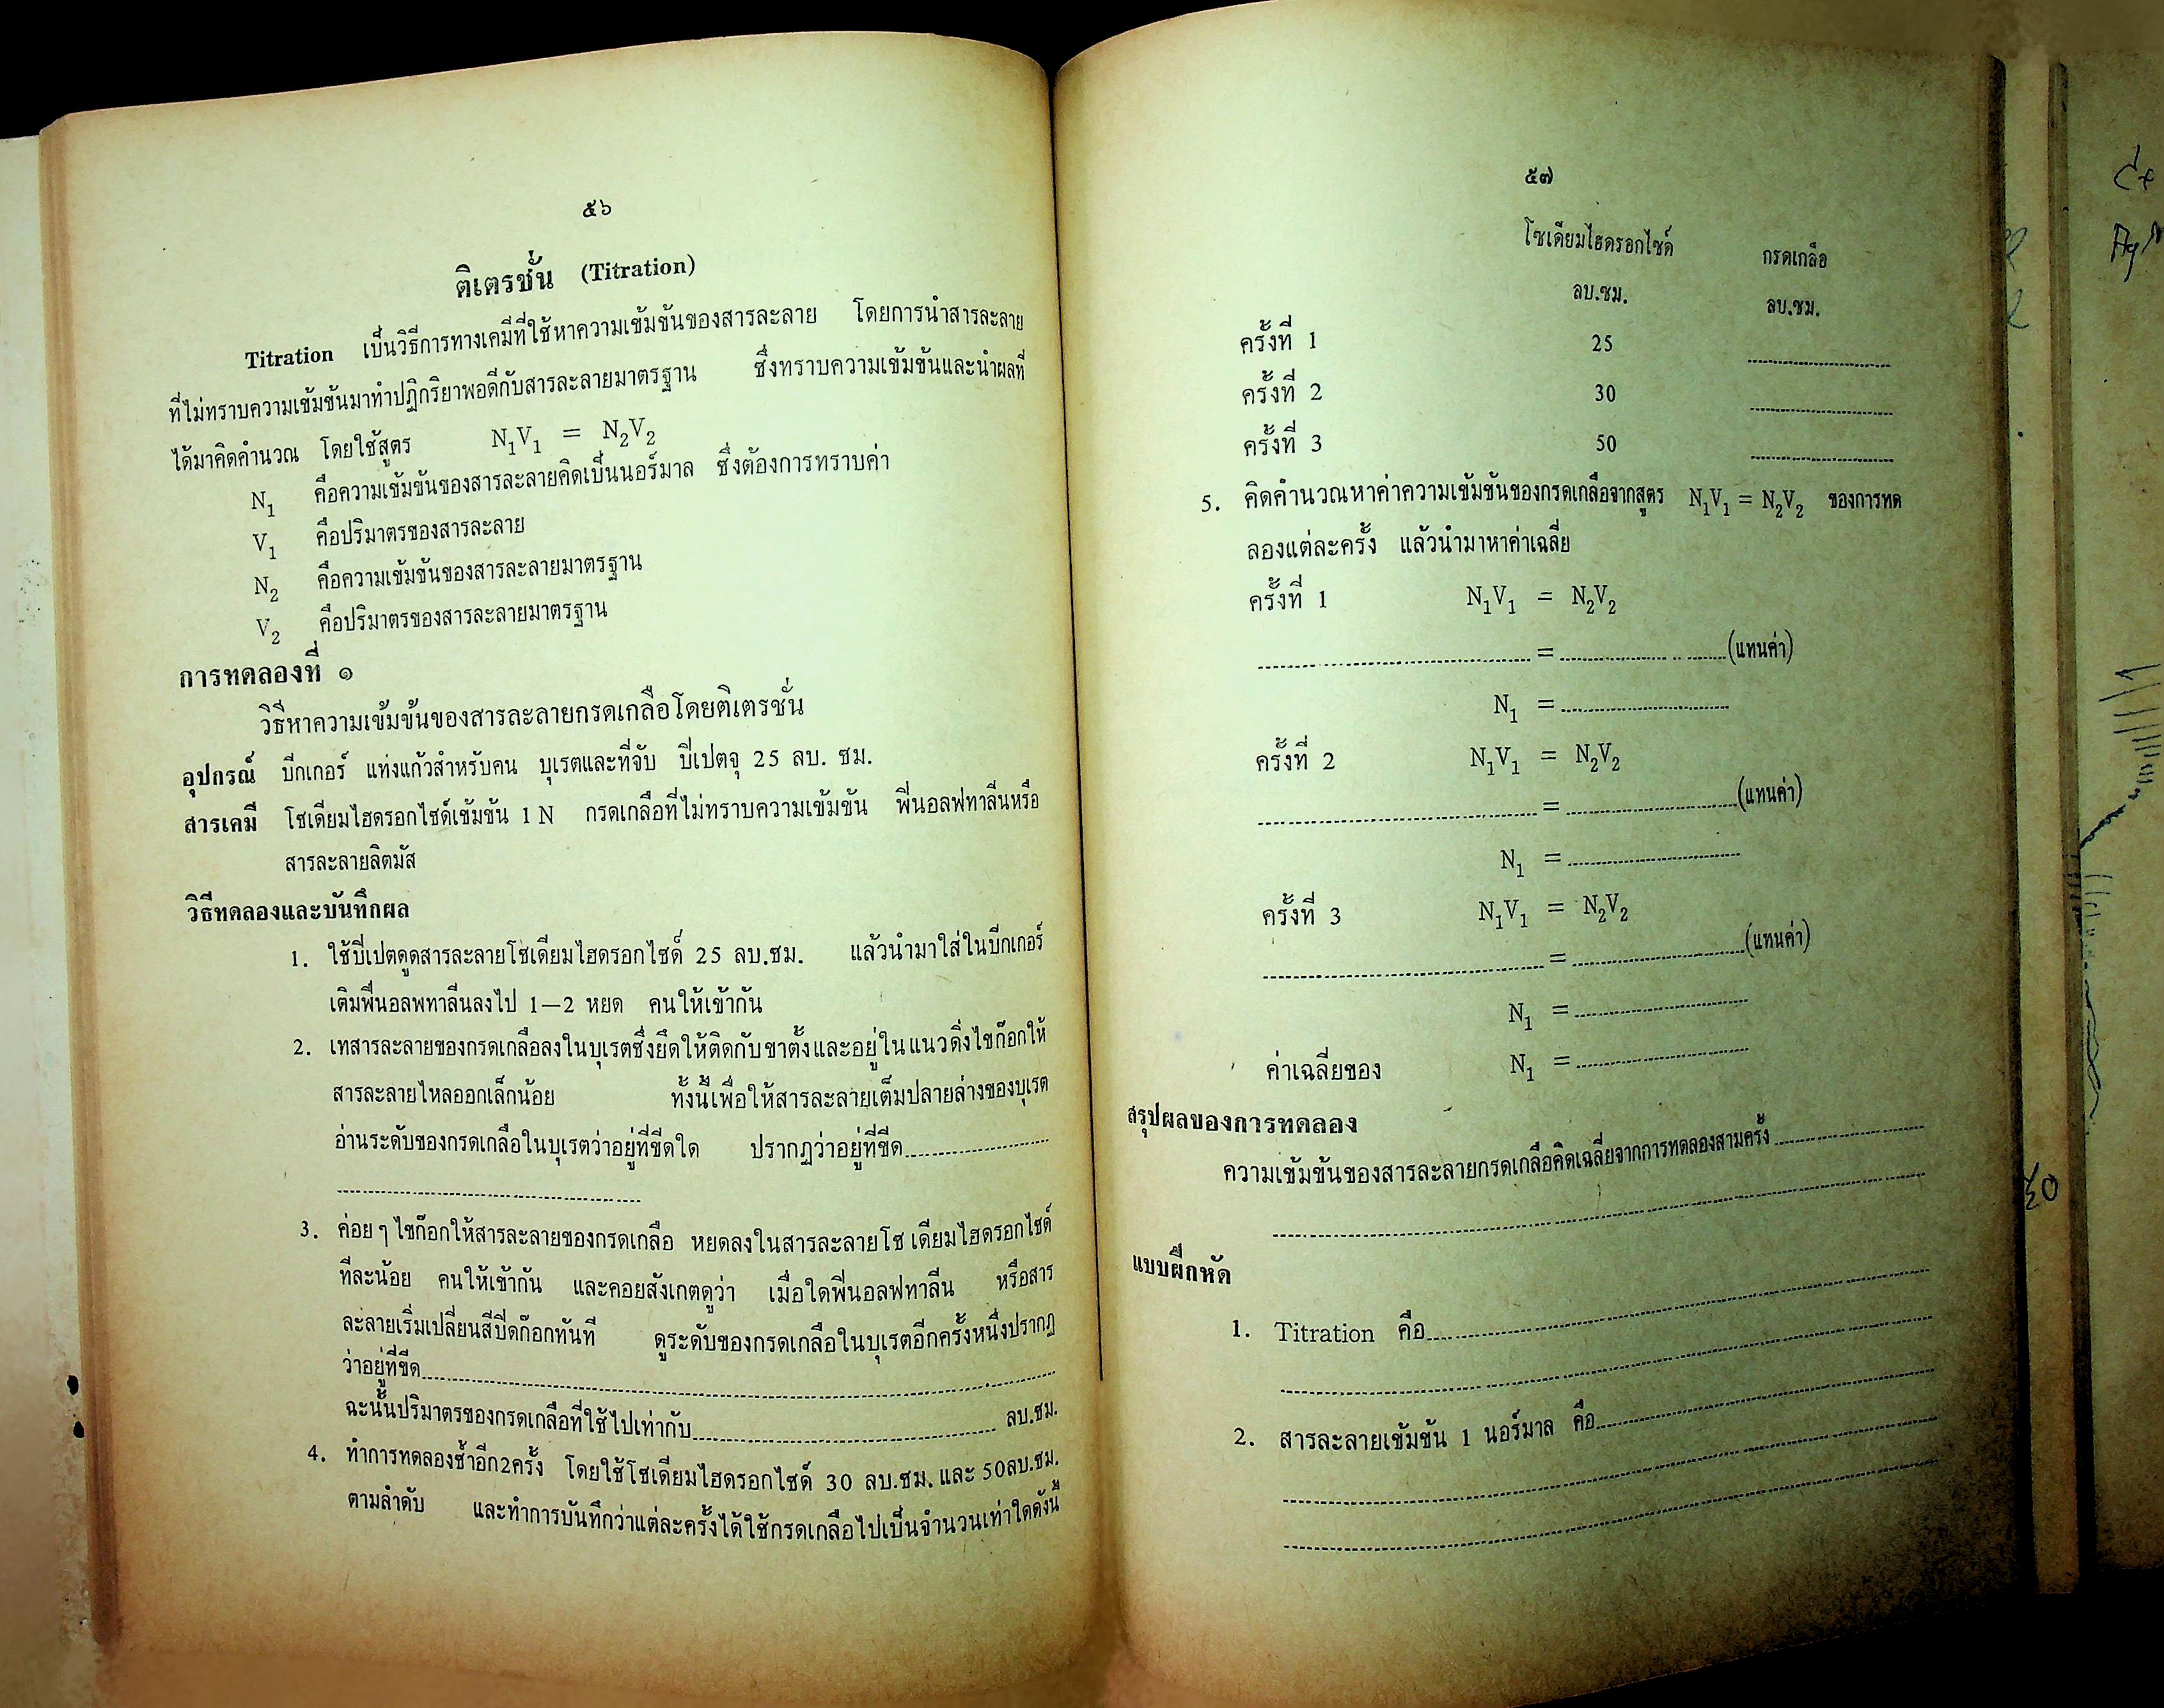 ๕๖
ติเตรชั่น (Titration)
Titration เป็นวิธีการทางเคมีที่ใช้หาความเข้มข้นของสารละลาย โดยการนำสารละลาย
ที่ไม่ทราบความเข้มข้นมาทำปฏิกริยาพอดีกับสารละลายมาตรฐาน ซึ่งทราบความเข้มข้นและนำผลที่
ได้มาคิดคำนวณ โดยใช้สูตร N₁V₁ = N₂V₂
N₁ คือความเข้มข้นของสารละลายคิดเป็นนอร์มาล ซึ่งต้องการทราบค่า
V₁ คือปริมาตรของสารละลาย
N₂ คือความเข้มข้นของสารละลายมาตรฐาน
V₂ คือปริมาตรของสารละลายมาตรฐาน
การทดลองที่ ๑
วิธีหาความเข้มข้นของสารละลายกรดเกลือโดยติเตรชั่น
อุปกรณ์ บีกเกอร์ แท่งแก้วสำหรับคน บุเรตและที่จับ ปิเปตจุ 25 ลบ. ซม.
สารเคมี โซเดียมไฮดรอกไซด์เข้มข้น 1 N กรดเกลือที่ไม่ทราบความเข้มข้น ฟีนอลฟทาลีนหรือ
สารละลายลิตมัส
วิธีทดลองและบันทึกผล
1. ใช้ปิเปตดูดสารละลายโซเดียมไฮดรอกไซด์ 25 ลบ.ซม. แล้วนำมาใส่ในบีกเกอร์
เติมฟีนอลพทาลีนลงไป 1—2 หยด คนให้เข้ากัน
2. เทสารละลายของกรดเกลือลงในบุเรตซึ่งยึดให้ติดกับขาตั้งและอยู่ในแนวดิ่งไขก๊อกให้
สารละลายไหลออกเล็กน้อย ทั้งนี้เพื่อให้สารละลายเต็มปลายล่างของบุเรต
อ่านระดับของกรดเกลือในบุเรตว่าอยู่ที่ขีดใด ปรากฏว่าอยู่ที่ขีด..........
..........
3. ค่อย ๆ ไขก๊อกให้สารละลายของกรดเกลือ หยดลงในสารละลายโซเดียมไฮดรอกไซด์
ทีละน้อย คนให้เข้ากัน และคอยสังเกตดูว่า เมื่อใดฟีนอลฟทาลีน หรือสาร
ละลายเริ่มเปลี่ยนสีปิดก๊อกทันที ดูระดับของกรดเกลือในบุเรตอีกครั้งหนึ่งปรากฏ
ว่าอยู่ที่ขีด..........
ฉะนั้นปริมาตรของกรดเกลือที่ใช้ไปเท่ากับ.......... ลบ.ซม.
4. ทำการทดลองซ้ำอีก2ครั้ง โดยใช้โซเดียมไฮดรอกไซด์ 30 ลบ.ซม. และ 50ลบ.ซม.
ตามลำดับ และทำการบันทึกว่าแต่ละครั้งได้ใช้กรดเกลือไปเป็นจำนวนเท่าใดดังนี้
๕๗
โซเดียมไฮดรอกไซด์ กรดเกลือ
ลบ.ซม. ลบ.ซม.
ครั้งที่ 1 25 ..........
ครั้งที่ 2 30 ..........
ครั้งที่ 3 50 ..........
5. คิดคำนวณหาค่าความเข้มข้นของกรดเกลือจากสูตร N₁V₁ = N₂V₂ ของการทด
ลองแต่ละครั้ง แล้วนำมาหาค่าเฉลี่ย
ครั้งที่ 1 N₁V₁ = N₂V₂
.......... = ..........(แทนค่า)
N₁ = ..........
ครั้งที่ 2 N₁V₁ = N₂V₂
.......... = ..........(แทนค่า)
N₁ = ..........
ครั้งที่ 3 N₁V₁ = N₂V₂
.......... = ..........(แทนค่า)
N₁ = ..........
ค่าเฉลี่ยของ N₁ = ..........
สรุปผลของการทดลอง
ความเข้มข้นของสารละลายกรดเกลือคิดเฉลี่ยจากการทดลองสามครั้ง..........
..........
แบบฝึกหัด
1. Titration คือ..........
..........
2. สารละลายเข้มข้น 1 นอร์มาล คือ..........
..........
..........